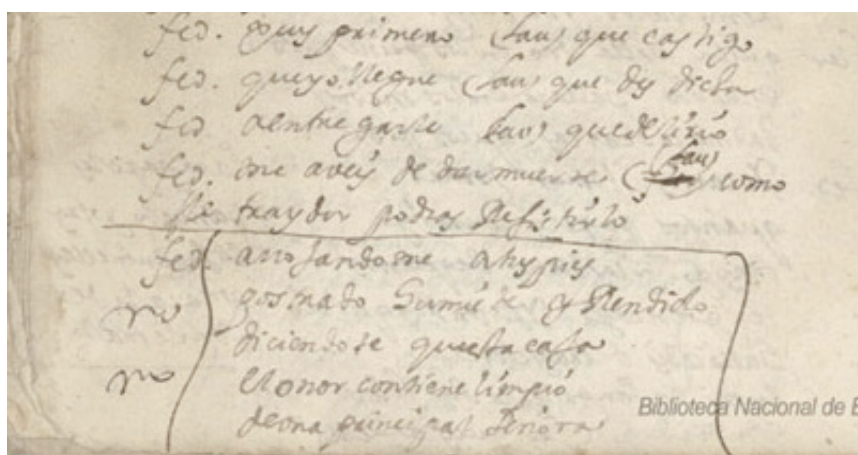 fed. pues primero (lau) que castigo
fed. que yo llegue (lau) que desdicha
fed. a entregarte (lau) que delirio
fed. me aveis de dar muerte (lau) como
traydor podras Resistirlo
fed. arrojandome a tus pies
no postrado humilde y Rendido
diciendote questa casa
no el onor contiene limpio
de una principal señora
Biblioteca Nacional de E